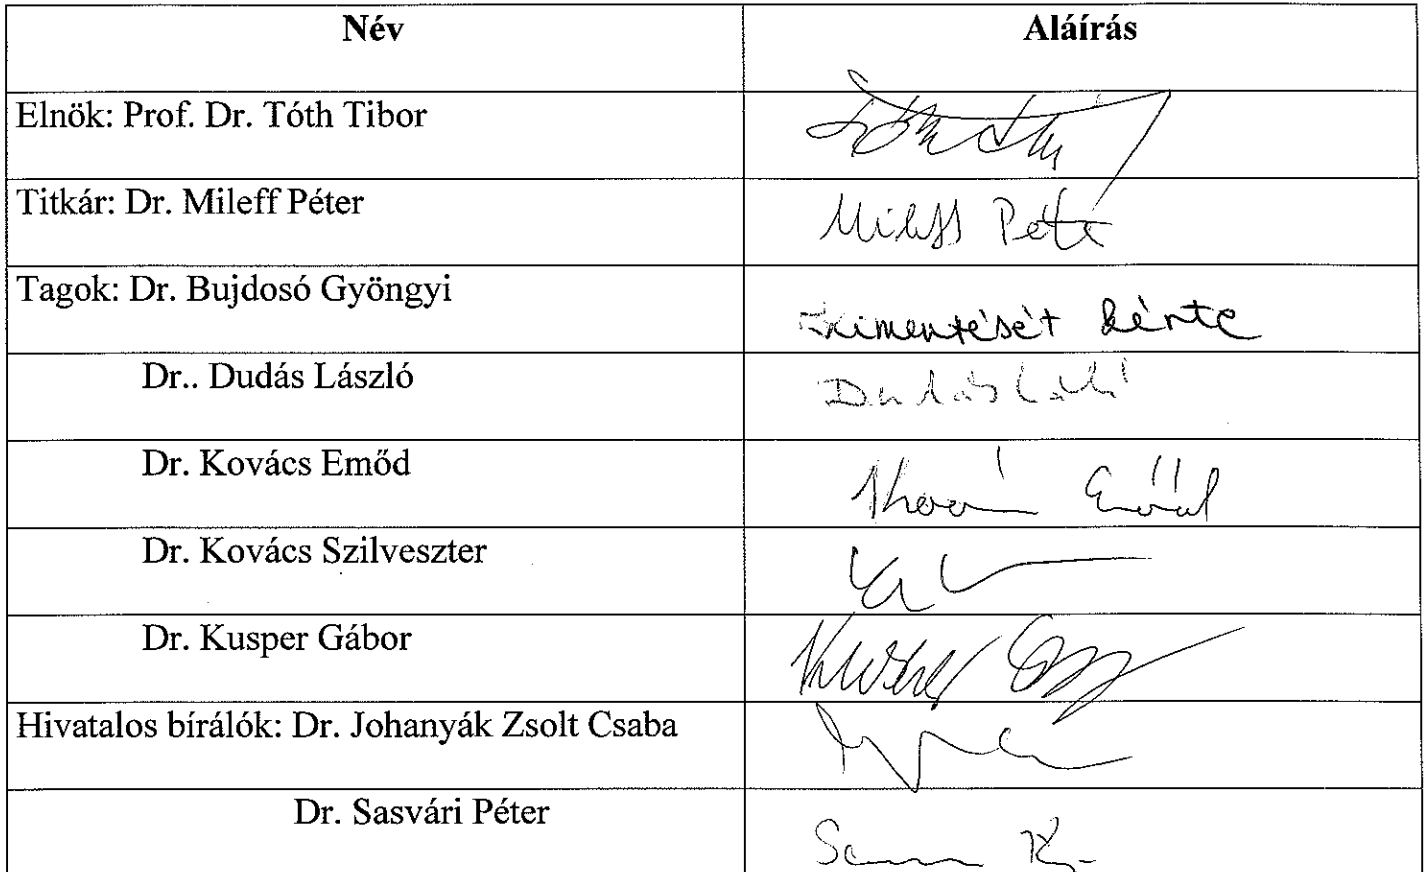 Név Aláírás
Elnök: Prof. Dr. Tóth Tibor
Titkár: Dr. Mileff Péter Mileff Péter
Tagok: Dr. Bujdosó Gyöngyi kimentését kérte
Dr.. Dudás László Dudás
Dr. Kovács Emőd Kovács Emőd
Dr. Kovács Szilveszter
Dr. Kusper Gábor Kusper
Hivatalos bírálók: Dr. Johanyák Zsolt Csaba
Dr. Sasvári Péter